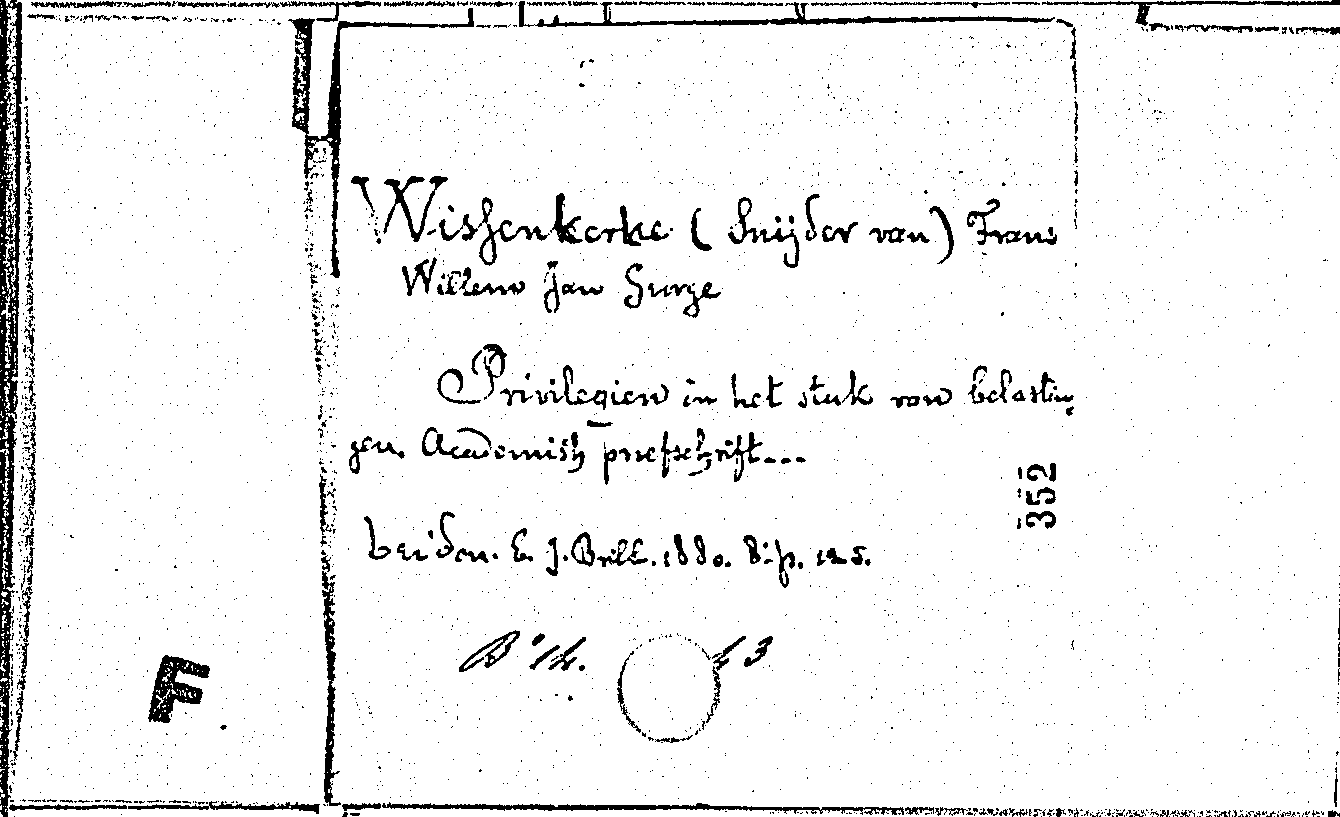 Wissenkerke (Snijder van) Frans
Willem Jan Jurge
Privilegien in het stuk van belastin-
gen. Academisch proefschrift...
352
Leiden. E. J. Brill. 1880. 8: p. 125.
3
F